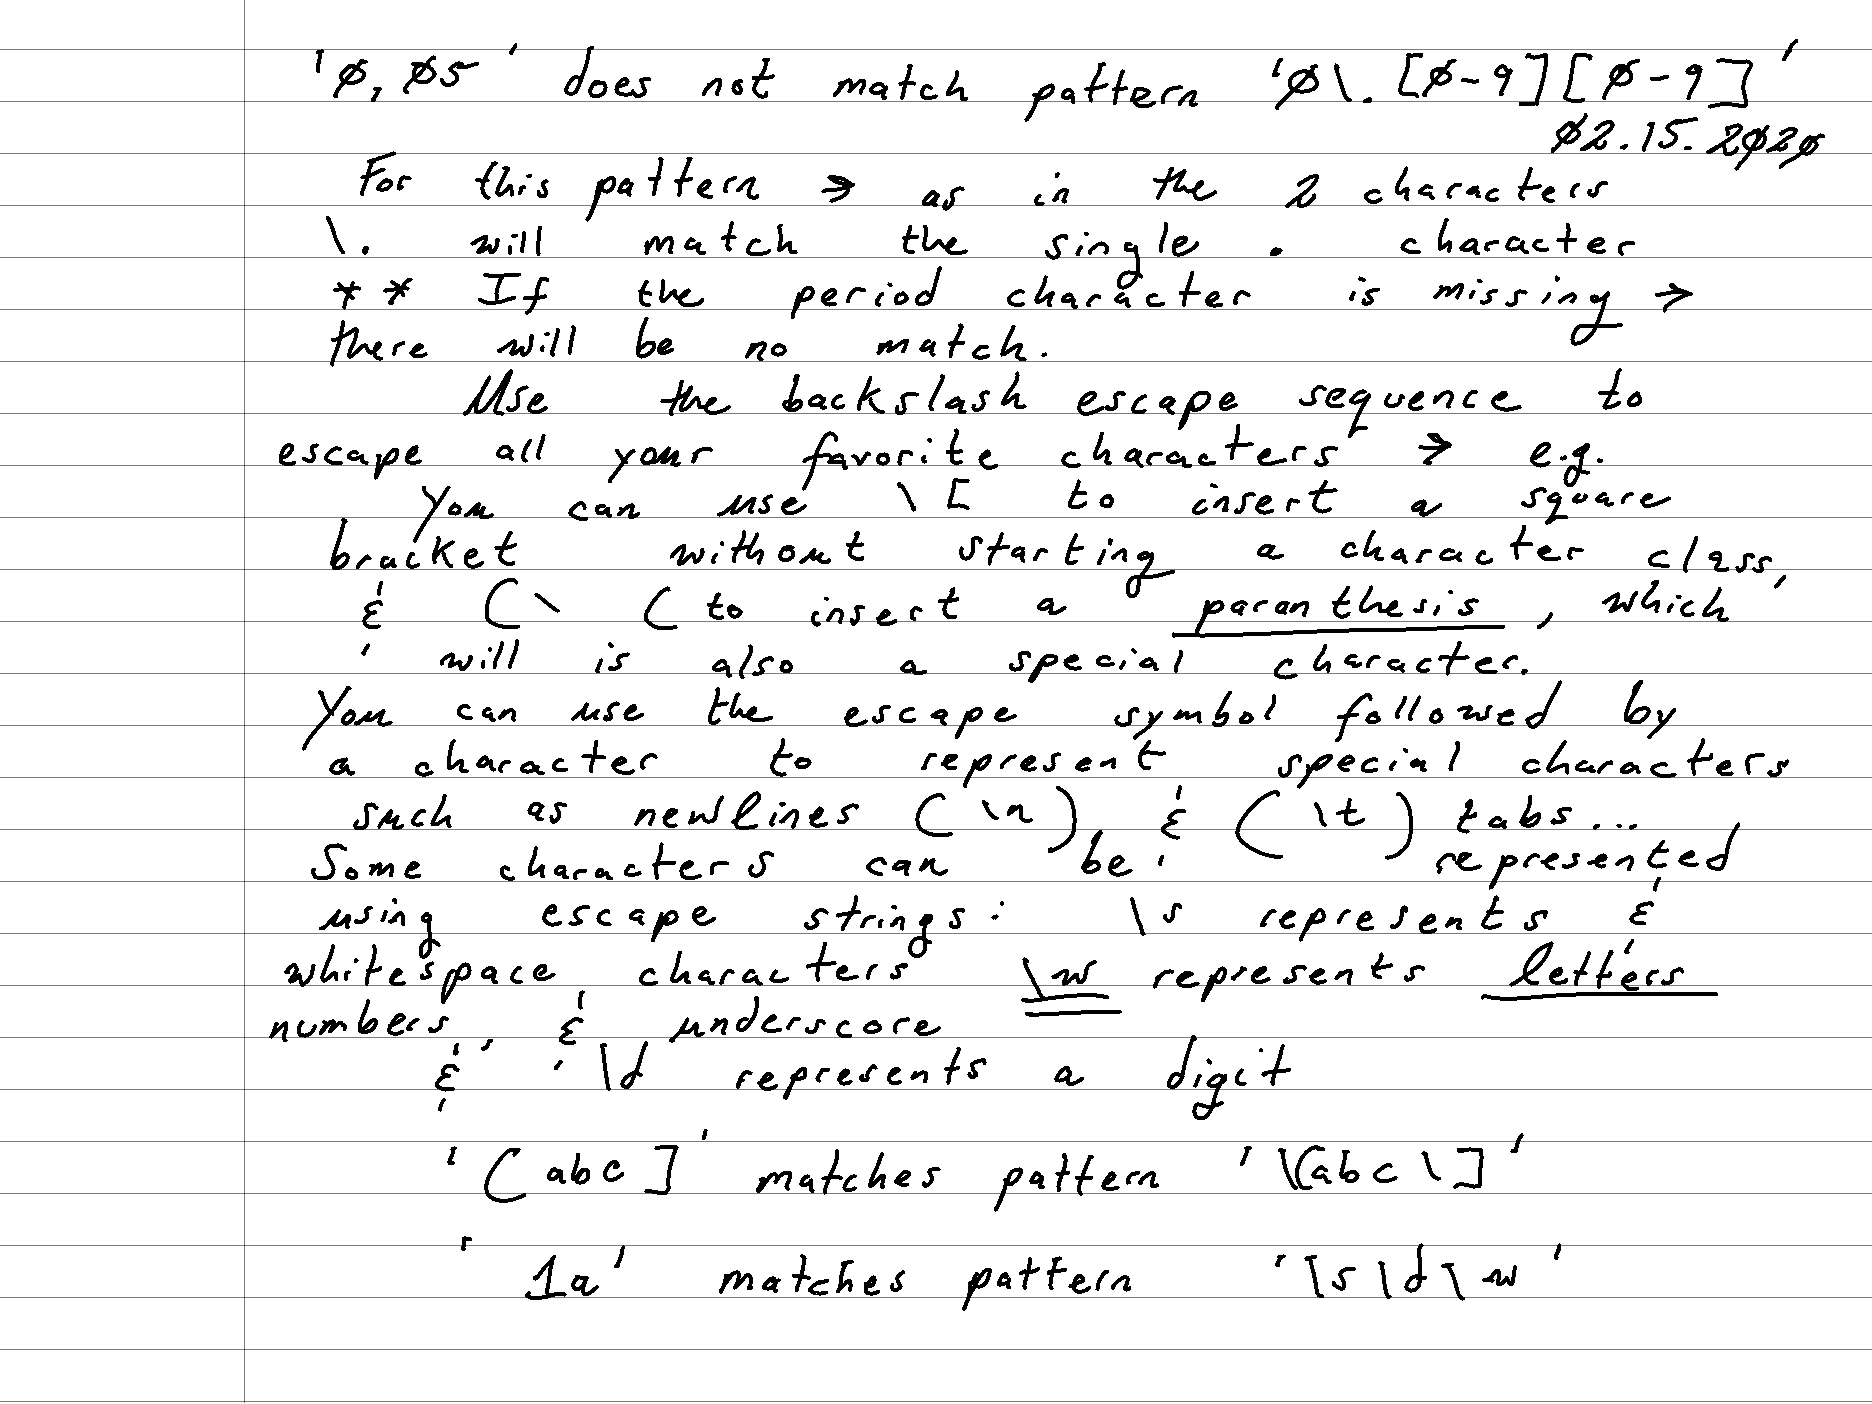 '0,05' does not match pattern '0\.[0-9][0-9]'
02.15.2020
For this pattern → as in the 2 characters
\. will match the single . character
** If the period character is missing →
there will be no match.
Use the backslash escape sequence to
escape all your favorite characters → e.g.
You can use \[ to insert a square
bracket without starting a character class,
& (\ ( to insert a paranthesis, which
will is also a special character.
You can use the escape symbol followed by
a character to represent special characters
such as newlines (\n), & (\t) tabs...
Some characters can be represented
using escape strings: \s represents &
whitespace characters \w represents letters
numbers, & underscore
& \d represents a digit
'(abc]' matches pattern '\(abc\]'
' 1a' matches pattern '\s\d\w'